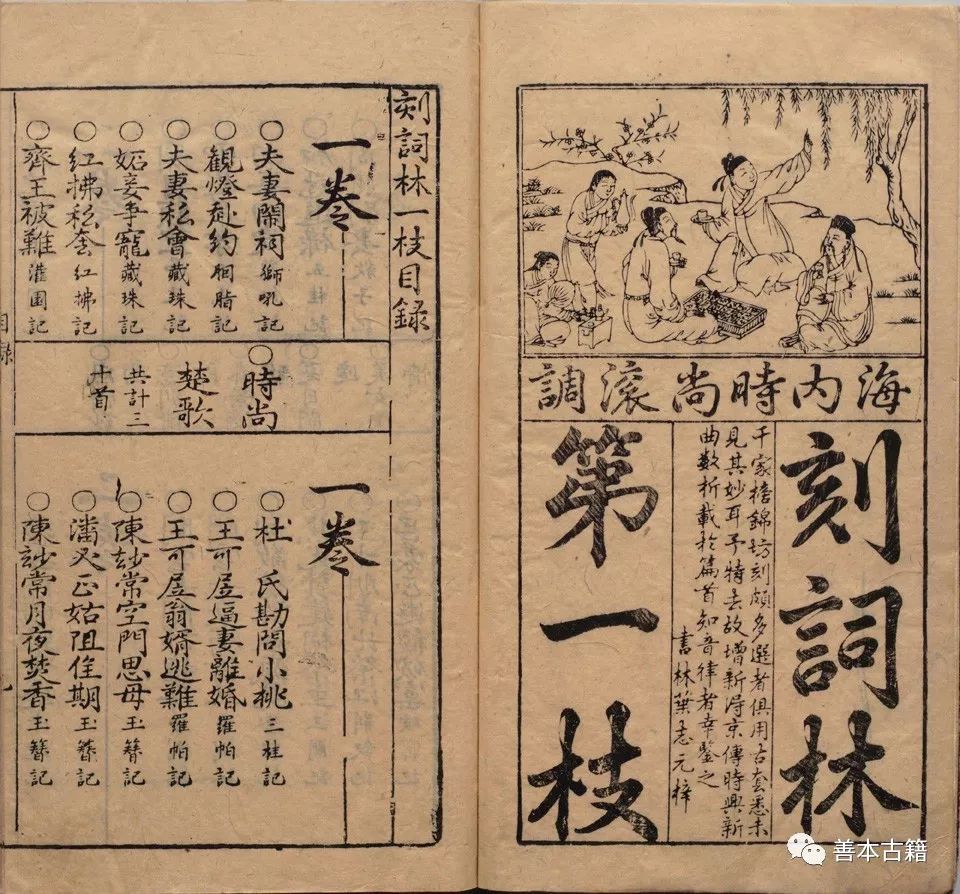 海內時尚滾調
刻詞林
千家摘錦坊刻頗多選者俱用古套悉未
見其妙耳予特去故增新得京傳時興新
曲數折載於篇首知音律者幸鑒之
書林葉志元梓
第一枝
刻詞林一枝目錄
一卷
○夫妻鬧祠 獅吼記
○觀燈赴約 胭脂記
○夫妻私會 藏珠記
○妬妾爭寵 藏珠記
○紅拂私奔 紅拂記
○齊王被難 灌園記
○時尚
楚歌
共計三
十首
一卷
○杜氏勘問小桃 三桂記
○王可居逼妻離婚 羅帕記
○王可居翁婿逃難 羅帕記
○陳妙常空門思母 玉簪記
○潘必正姑阻佳期 玉簪記
○陳妙常月夜焚香 玉簪記
善本古籍